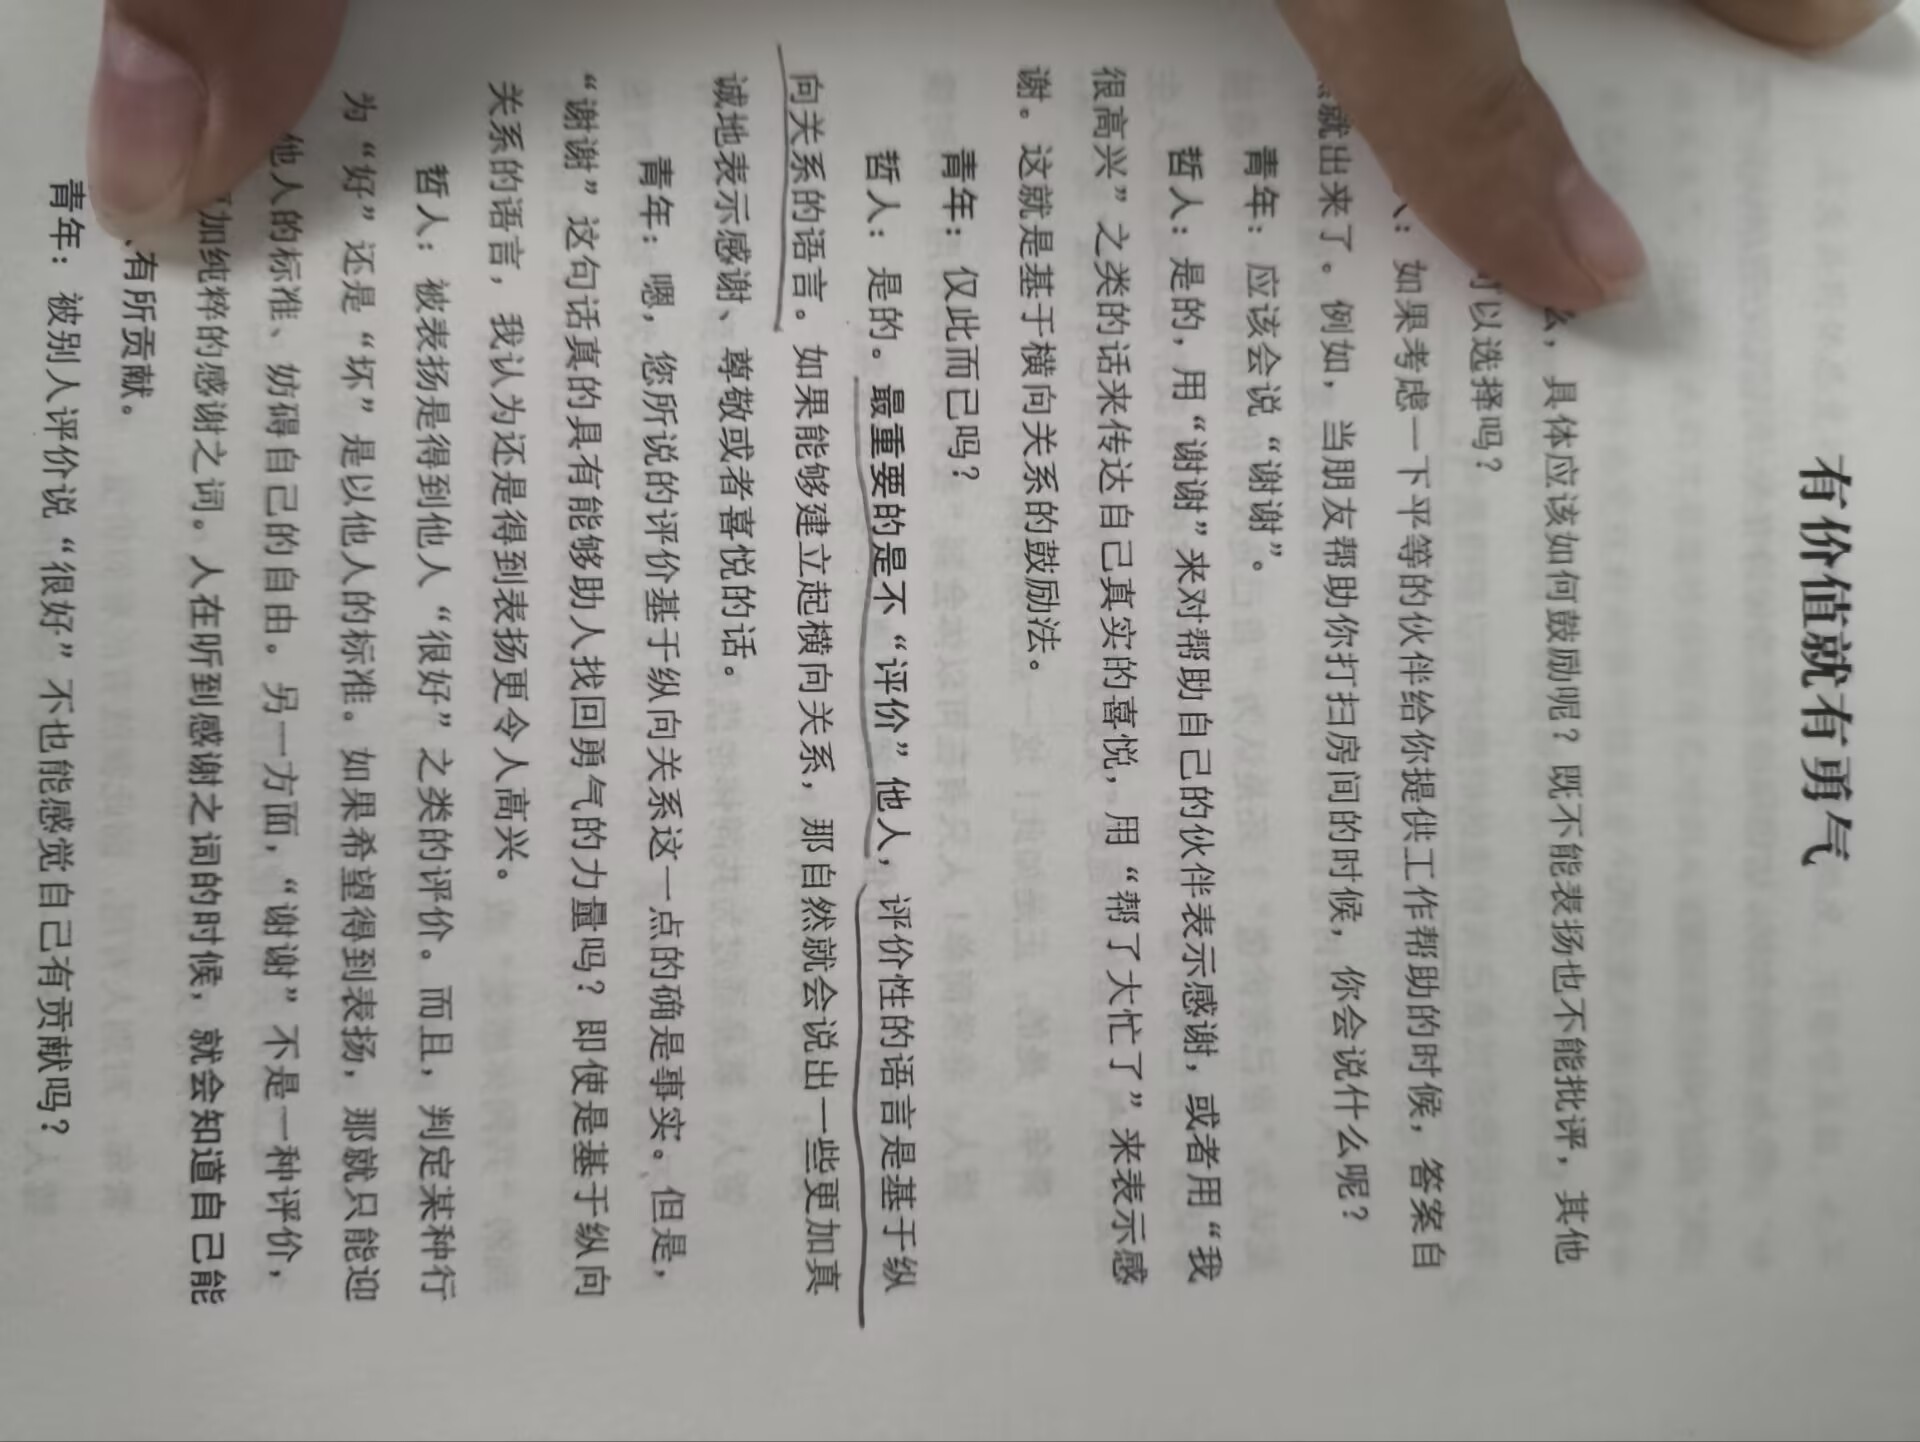 有价值就有勇气
么，具体应该如何鼓励呢？既不能表扬也不能批评，其他
可以选择吗？
：如果考虑一下平等的伙伴给你提供工作帮助的时候，答案自
就出来了。例如，当朋友帮助你打扫房间的时候，你会说什么呢？
青年：应该会说“谢谢”。
哲人：是的，用“谢谢”来对帮助自己的伙伴表示感谢，或者用“我
很高兴”之类的话来传达自己真实的喜悦，用“帮了大忙了”来表示感
谢。这就是基于横向关系的鼓励法。
青年：仅此而已吗？
哲人：是的。最重要的是不“评价”他人，评价性的语言是基于纵
向关系的语言。如果能够建立起横向关系，那自然就会说出一些更加真
诚地表示感谢、尊敬或者喜悦的话。
青年：嗯，您所说的评价基于纵向关系这一点的确是事实。但是，
“谢谢”这句话真的具有能够助人找回勇气的力量吗？即使是基于纵向
关系的语言，我认为还是得到表扬更令人高兴。
哲人：被表扬是得到他人“很好”之类的评价。而且，判定某种行
为“好”还是“坏”是以他人的标准。如果希望得到表扬，那就只能迎
他人的标准、妨碍自己的自由。另一方面，“谢谢”不是一种评价，
加纯粹的感谢之词。人在听到感谢之词的时候，就会知道自己能
有所贡献。
青年：被别人评价说“很好”不也能感觉自己有贡献吗？